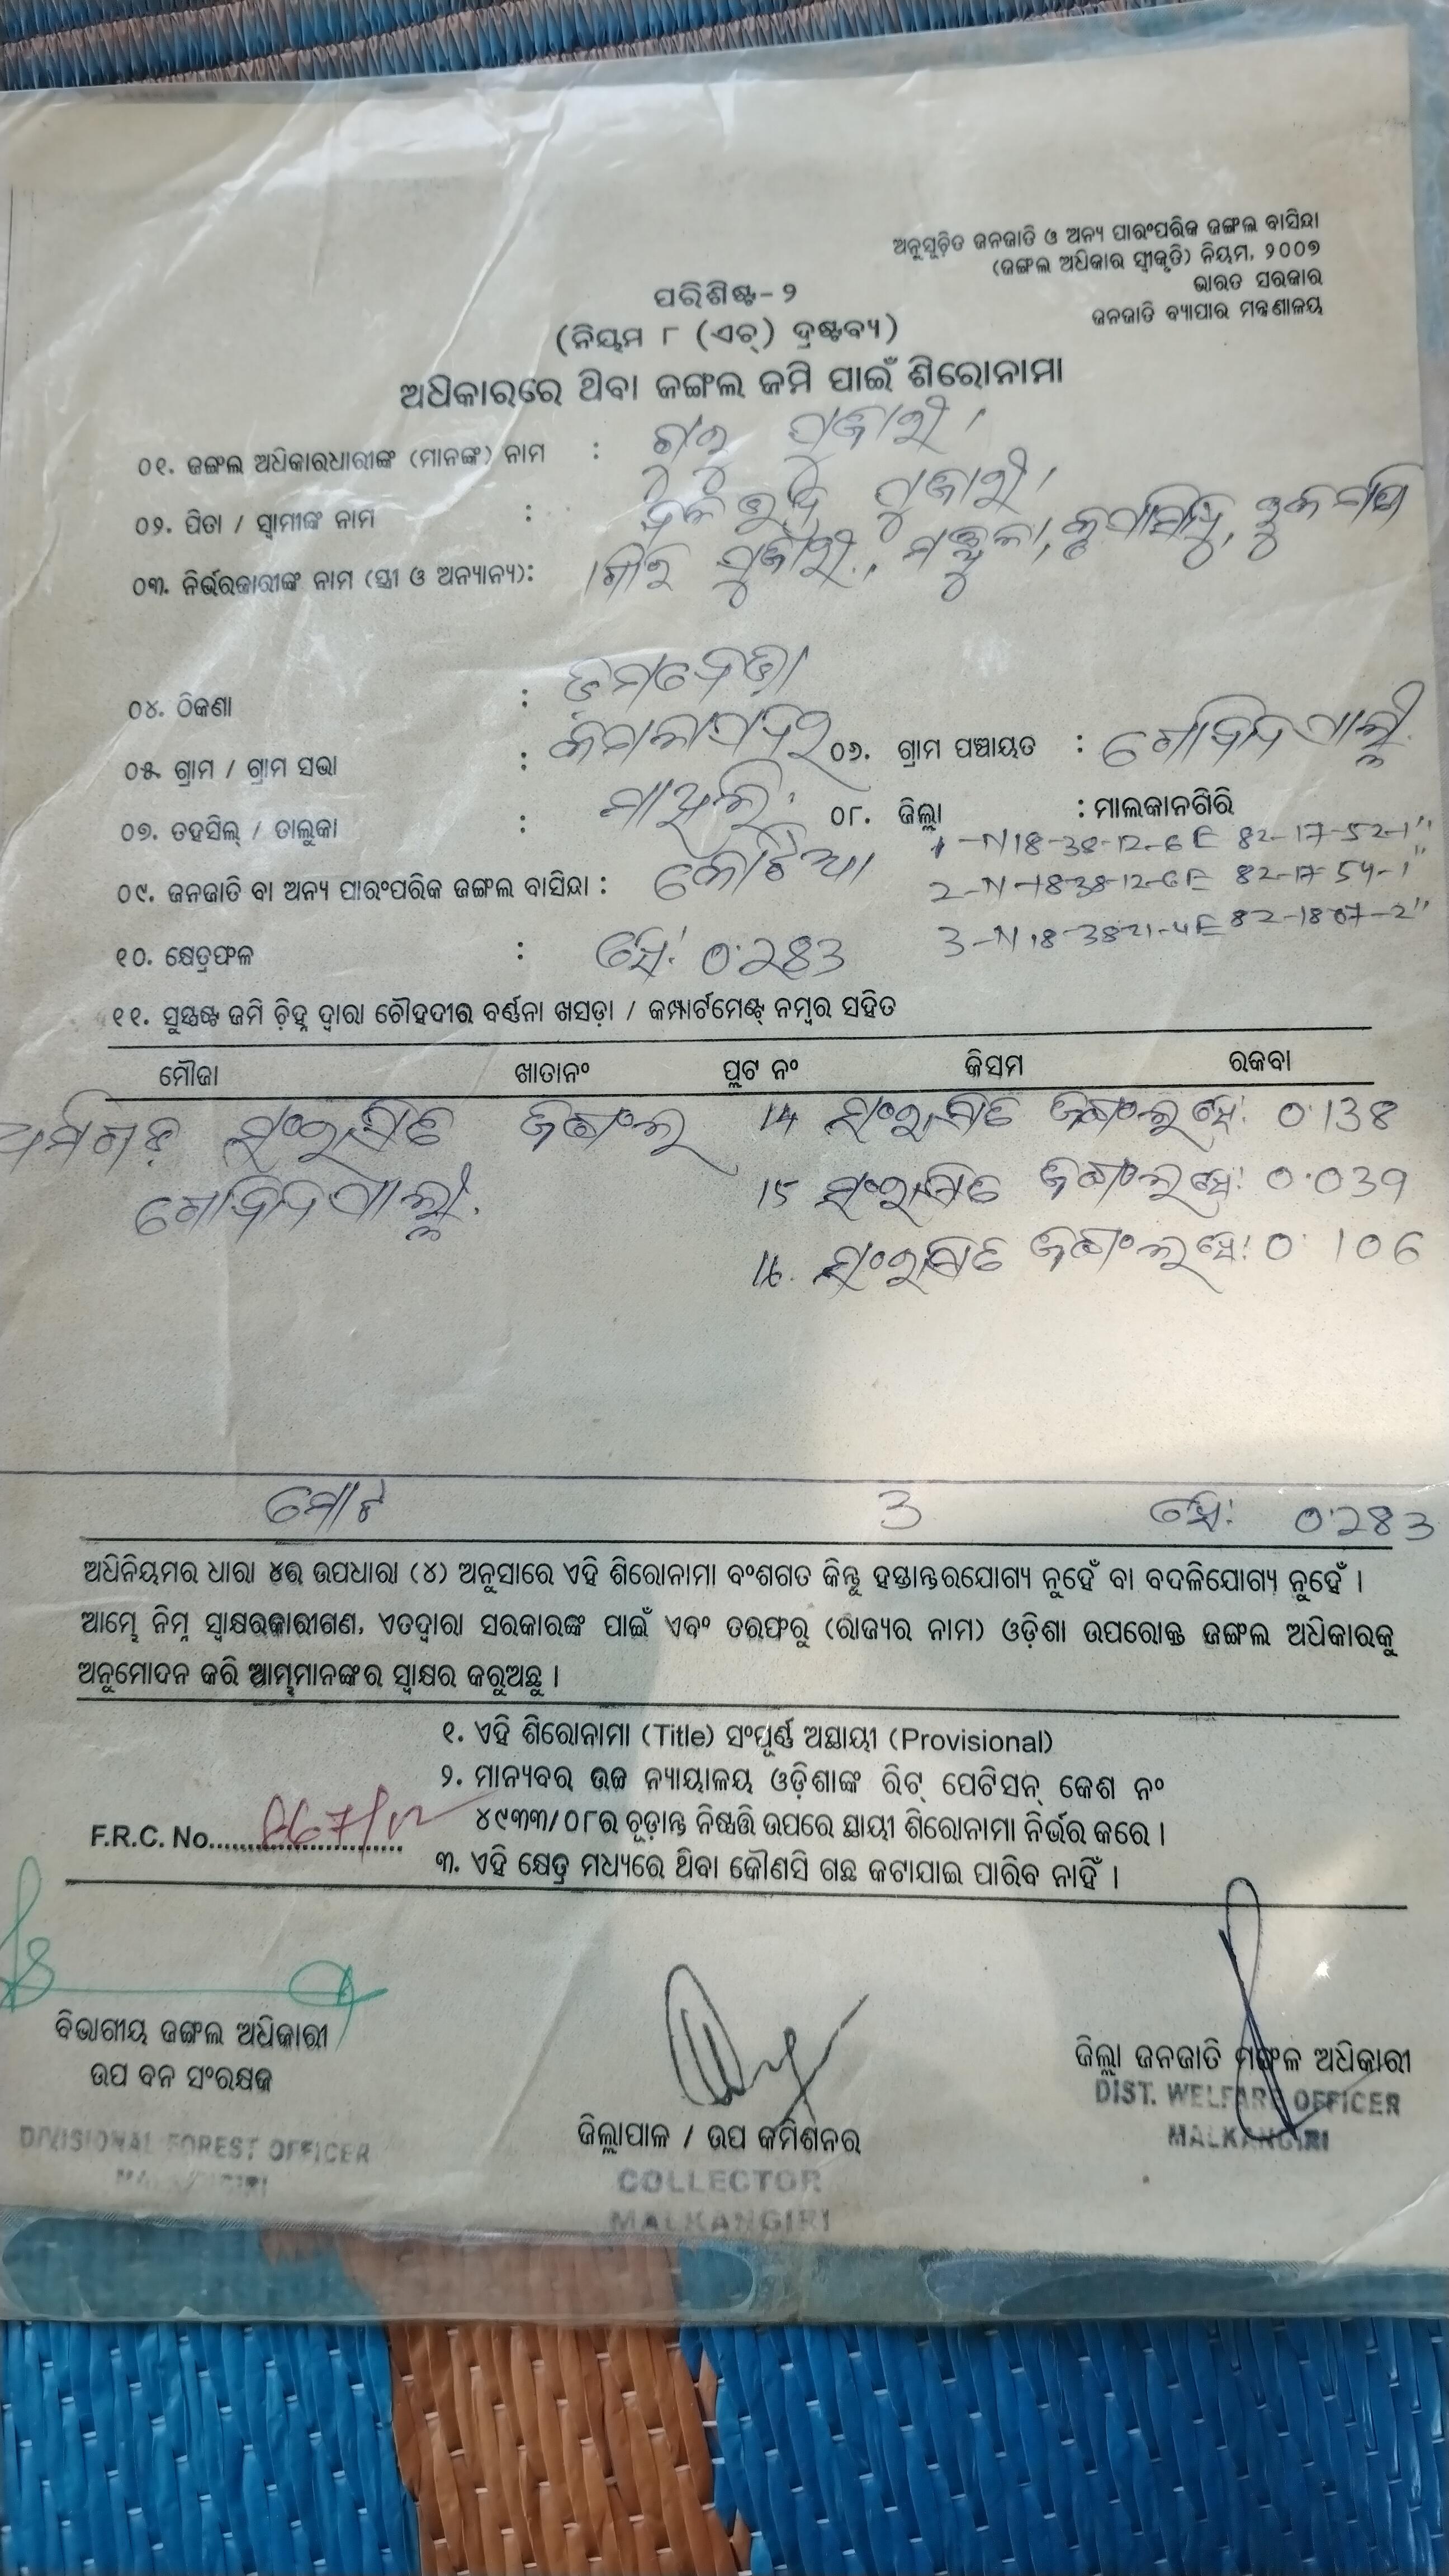 ଅନୁସୂଚିତ ଜନଜାତି ଓ ଅନ୍ୟ ପାରଂପରିକ ଜଙ୍ଗଲ ବାସିନ୍ଦା
(ଜଙ୍ଗଲ ଅଧିକାର ସ୍ୱୀକୃତି) ନିୟମ, ୨୦୦୭
ଭାରତ ସରକାର
ଜନଜାତି ବ୍ୟାପାର ମନ୍ତ୍ରଣାଳୟ
ପରିଶିଷ୍ଟ-୨
(ନିୟମ ୮ (ଏଚ୍) ଦ୍ରଷ୍ଟବ୍ୟ)
ଅଧିକାରରେ ଥିବା ଜଙ୍ଗଲ ଜମି ପାଇଁ ଶିରୋନାମା
୦୧. ଜଙ୍ଗଲ ଅଧିକାରଧାରୀଙ୍କ (ମାନଙ୍କ) ନାମ : ପୁଜାରୀ
୦୨. ପିତା / ସ୍ୱାମୀଙ୍କ ନାମ : ପୁଜାରୀ
୦୩. ନିର୍ଭରକାରୀଙ୍କ ନାମ (ସ୍ତ୍ରୀ ଓ ଅନ୍ୟାନ୍ୟ): ପୁଜାରୀ
୦୪. ଠିକଣା :
୦୫. ଗ୍ରାମ / ଗ୍ରାମ ସଭା : ୦୬. ଗ୍ରାମ ପଞ୍ଚାୟତ : ଗୋବିନ୍ଦପାଲ୍ଲୀ
୦୭. ତହସିଲ୍ / ତାଲୁକା : ମାଥିଲି ୦୮. ଜିଲ୍ଲା : ମାଲକାନଗିରି
1-N18-38-12-6E 82-17-52-1"
୦୯. ଜନଜାତି ବା ଅନ୍ୟ ପାରଂପରିକ ଜଙ୍ଗଲ ବାସିନ୍ଦା : 2-N-18-38-12-6E 82-17-54-1"
3-N18-3821-4E 82-1807-2"
୧୦. କ୍ଷେତ୍ରଫଳ : ହେ: 0.283
୧୧. ସୁସ୍ପଷ୍ଟ ଜମି ଚିହ୍ନ ଦ୍ୱାରା ଚୌହଦୀର ବର୍ଣ୍ଣନା ଖସଡ଼ା / କମ୍ପାର୍ଟମେଣ୍ଟ୍ ନମ୍ବର ସହିତ
ମୌଜା ଖାତାନଂ ପ୍ଲଟ ନଂ କିସମ ରକବା
ସଂରକ୍ଷିତ ଜଙ୍ଗଲ 14 ସଂରକ୍ଷିତ ଜଙ୍ଗଲ ହେ: 0.138
ଗୋବିନ୍ଦପାଲ୍ଲୀ 15 ସଂରକ୍ଷିତ ଜଙ୍ଗଲ ହେ: 0.039
16. ସଂରକ୍ଷିତ ଜଙ୍ଗଲ ହେ: 0.106
ମୋଟ 3 ହେ: 0.283
ଅଧିନିୟମର ଧାରା ୪ର ଉପଧାରା (୪) ଅନୁସାରେ ଏହି ଶିରୋନାମା ବଂଶଗତ କିନ୍ତୁ ହସ୍ତାନ୍ତରଯୋଗ୍ୟ ନୁହେଁ ବା ବଦଳିଯୋଗ୍ୟ ନୁହେଁ ।
ଆମ୍ଭେ ନିମ୍ନ ସ୍ୱାକ୍ଷରକାରୀଗଣ, ଏତଦ୍ୱାରା ସରକାରଙ୍କ ପାଇଁ ଏବଂ ତରଫରୁ (ରାଜ୍ୟର ନାମ) ଓଡ଼ିଶା ଉପରୋକ୍ତ ଜଙ୍ଗଲ ଅଧିକାରକୁ
ଅନୁମୋଦନ କରି ଆମ୍ଭମାନଙ୍କର ସ୍ୱାକ୍ଷର କରୁଅଛୁ ।
୧. ଏହି ଶିରୋନାମା (Title) ସଂପୂର୍ଣ୍ଣ ଅସ୍ଥାୟୀ (Provisional)
୨. ମାନ୍ୟବର ଉଚ୍ଚ ନ୍ୟାୟାଳୟ ଓଡ଼ିଶାଙ୍କ ରିଟ୍ ପେଟିସନ୍ କେଶ ନଂ
୪୯୩୩/୦୮ର ଚୂଡ଼ାନ୍ତ ନିଷ୍ପତ୍ତି ଉପରେ ସ୍ଥାୟୀ ଶିରୋନାମା ନିର୍ଭର କରେ ।
F.R.C. No.
୩. ଏହି କ୍ଷେତ୍ର ମଧ୍ୟରେ ଥିବା କୌଣସି ଗଛ କଟାଯାଇ ପାରିବ ନାହିଁ ।
ବିଭାଗୀୟ ଜଙ୍ଗଲ ଅଧିକାରୀ
ଉପ ବନ ସଂରକ୍ଷକ
DIVISIONAL FOREST OFFICER
MALKANGIRI
ଜିଲ୍ଲାପାଳ / ଉପ କମିଶନର
COLLECTOR
MALKANGIRI
ଜିଲ୍ଲା ଜନଜାତି ମଙ୍ଗଳ ଅଧିକାରୀ
DIST. WELFARE OFFICER
MALKANGIRI